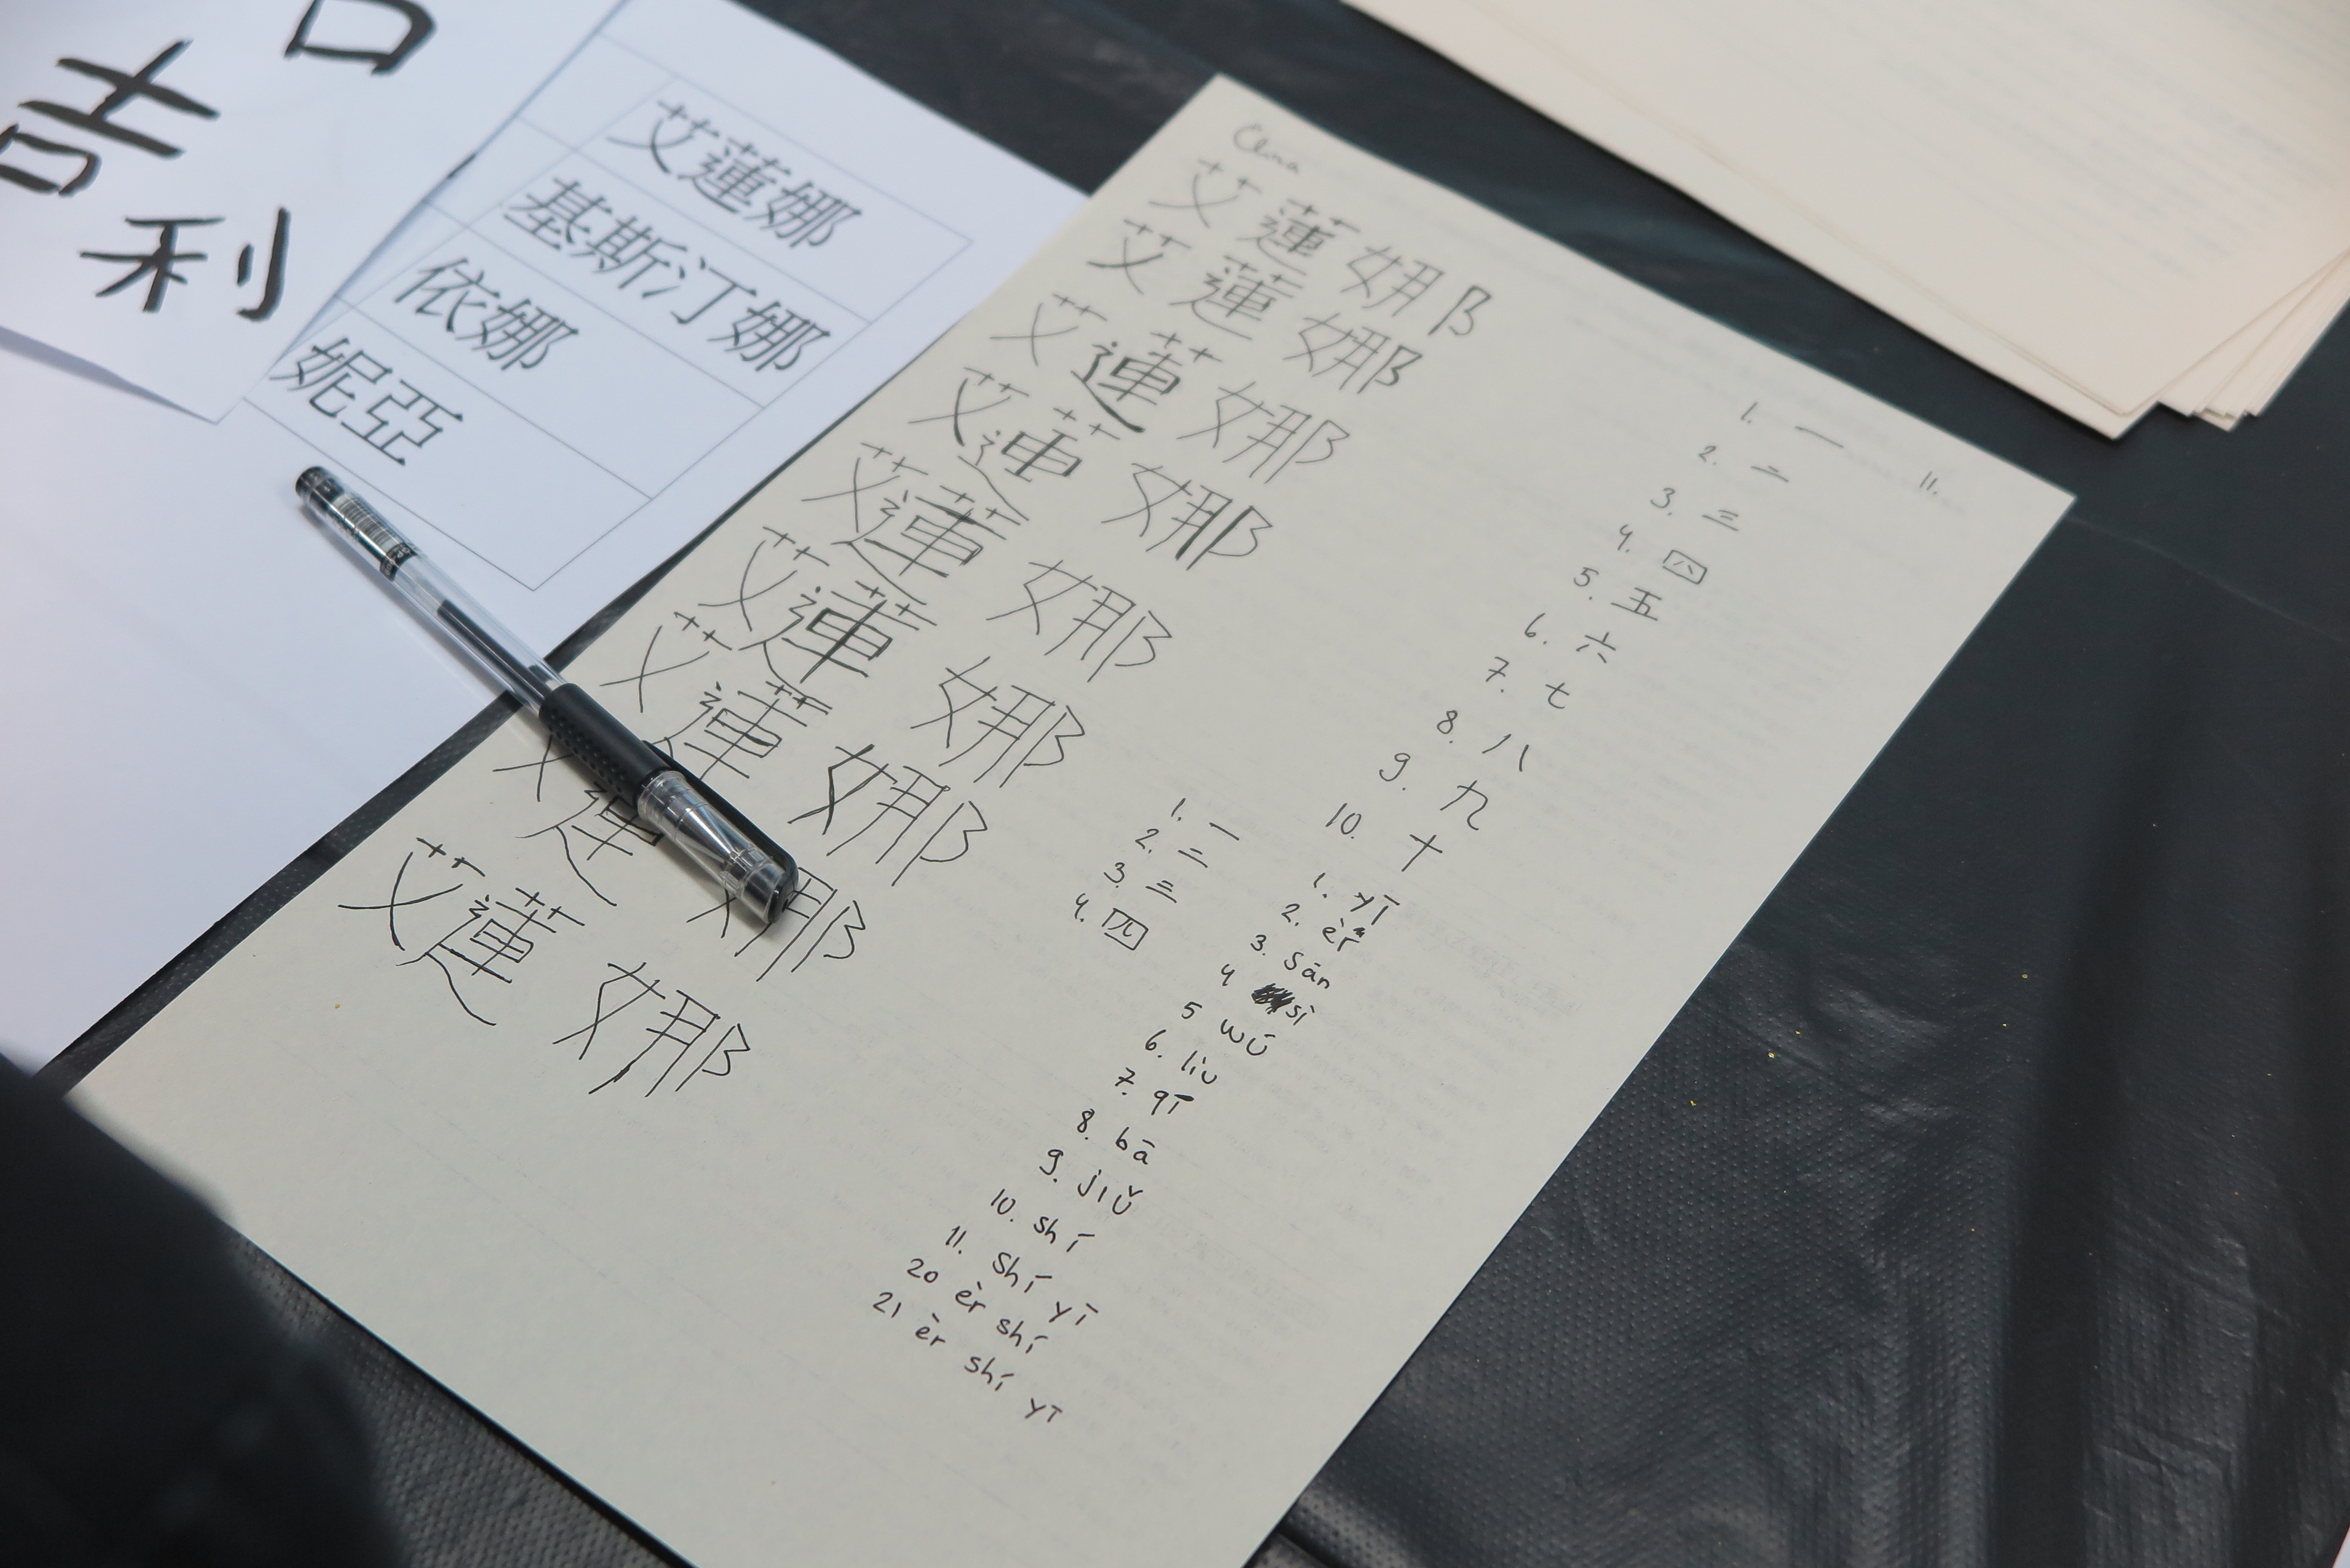 吉
利
艾蓮娜
基斯汀娜
依娜
妮亞
艾蓮娜
艾蓮娜
艾蓮娜
艾蓮娜
艾蓮娜
艾蓮娜
艾蓮娜
艾蓮娜
艾蓮娜
1. 一
2. 二
3. 三
4. 四
1. 一
2. 二
3. 三
4. 四
5. 五
6. 六
7. 七
8. 八
9. 九
10. 十
11.
1. yī
2. èr
3. sān
4 sì
5 wú
6. lìu
7. qī
8. bā
9. jiǔ
10. shí
11. shí yī
20 èr shí
21 èr shí yī